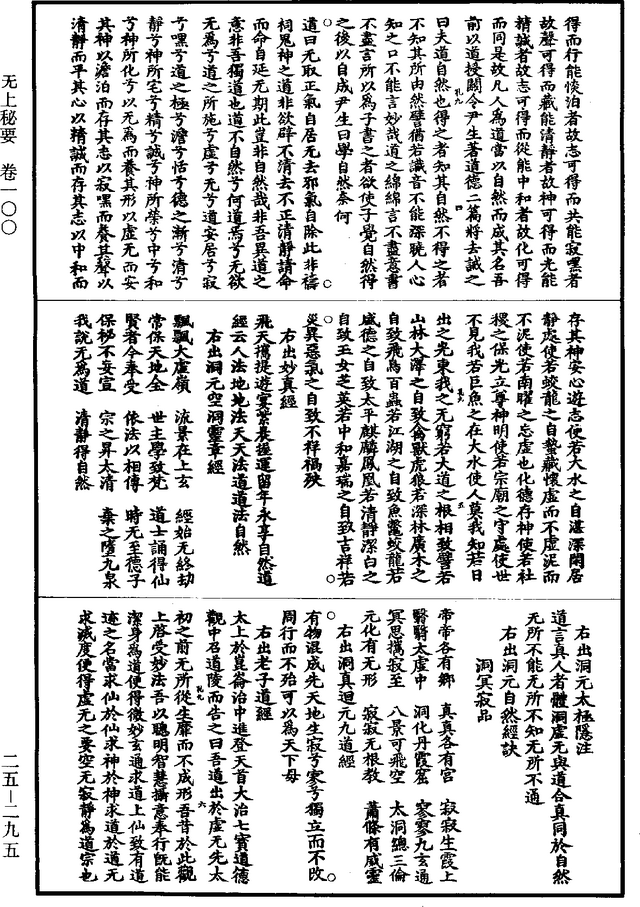 无上秘要　卷一〇〇
二五—二九五
得而行能惔泊者故志可得而共能寂嘿者
故聲可得而藏能清靜者故神可得而先能
精誠者故志可得而從能中和者故化可得
而同是故凡人為道當以自然而成其名吾
前以道授關令尹生著道德二篇將去誡之
曰夫道自然也得之者知其自然不得之者
不知其所由然譬猶若識音不能深曉人心
知之口不能言妙哉道之綿綿言不盡意書
不盡言所以為子書之者欲使子覺自然得
之後以自成尹生曰學自然奈何
道曰无取正氣自居无去邪氣自除此非禱
祠鬼神之道非欲辟不清去不正清靜請命
而命自延无期此豈非自然哉非吾異道之
意非吾獨道也道不自然兮何道焉兮无欲
无為兮道之所施兮虛兮无兮道安居兮寂
兮嘿兮道之極兮澹兮恬兮德之漸兮清兮
靜兮神所宅兮精兮誠兮神所榮兮中兮和
兮神所化兮以无為而養其形以虛无而安
其神以澹泊而存其志以寂嘿而養其聲以
清靜而平其心以精誠而存其志以中和而
存其神安心遊志使若大水之自湛深閑居
靜處使若蛟龍之自蟄藏懷虛而不虛泥而
不泥使若南曜之忘虛也化德存神使若社
稷之保光立尊神明使若宗廟之守處使世
不見我若巨魚之在大水使人莫我知若日
出之光東我之无窮若大道之根相致譬若
山林大澤之自致禽獸虎狼若深林廣木之
自致飛鳥百蟲若江湖之自致魚鼈蛟龍若
威德之自致太平麒麟鳳凰若清靜潔白之
自致玉女芝英若中和嘉瑞之自致吉祥若
災異惡氣之自致不祥禍殃
右出妙真經
飛天攜提遊宴紫晨握運留年永享自然道
經云人法地地法天天法道道法自然
右出洞元空洞靈章經
飄飄大虛嶺　流景在上玄　經始无終劫
常保天地全　世主學致梵　道士誦得仙
賢者令奉受　依法以相傳　時无至德子
保秘不妄宣　宗之昇太清　棄之墮九泉
我說无為道　清靜得自然
右出洞元太極隱注
道言真人者體洞虛无與道合真同於自然
无所不能无所不知无所不通
右出洞元自然經訣
洞冥寂品
帝帝各有鄉　真真各有宮　寂寂生霞上
翳翳太虛中　洞化丹霞窟　寥寥九玄通
冥思攜寂至　八景可飛空　太洞總三倫
元化有无形　寂寂无根教　蕭條有威靈
右出洞真迴元九道經
有物混成先天地生寂兮寥兮獨立而不改
周行而不殆可以為天下母
右出老子道經
太上於崑崙治中進登天首大治七寶道德
觀中召道陵而告之曰吾道出於虛无先太
初之前无所從生靡而不成形吾昔於此觀
上啓受妙法吾以聰明智慧攝意奉行既能
潔身為道便得微妙玄通求道上仙致有道
迹之名當求仙於仙求神於神求道於道无
求滅度便得虛无之要空无寂靜為道宗也